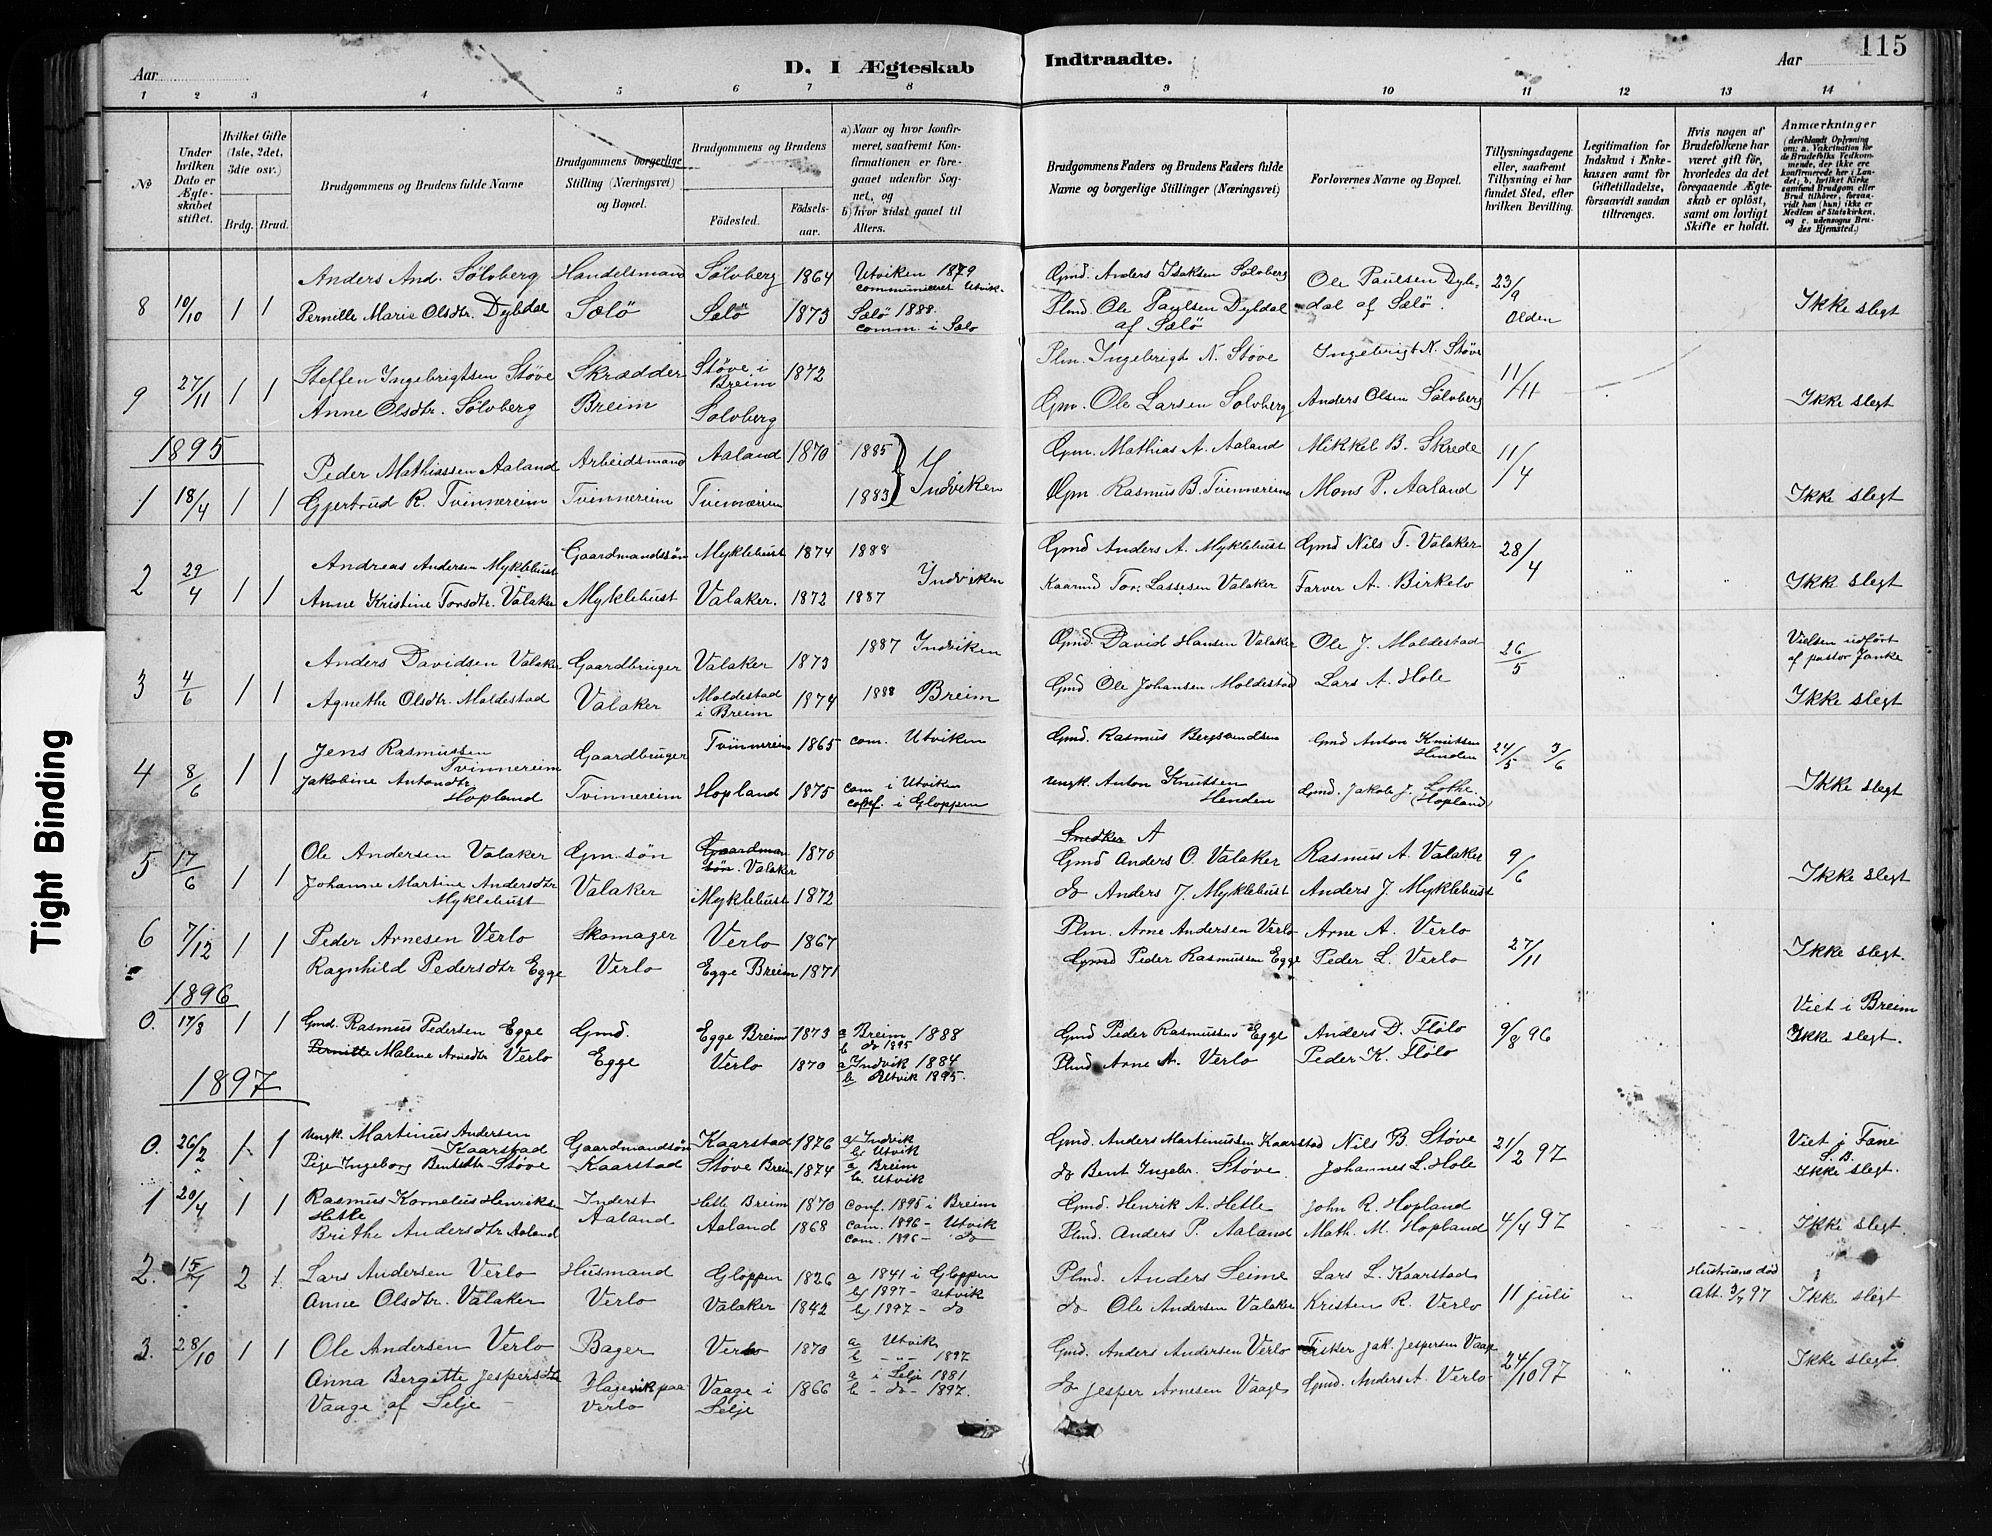 115
Aar D. I Ægteskab Indtraadte. Aar
1 2 3 4 5 6 7 8 9 10 11 12 13 14
No
Under hvilken Dato er Ægteskabet stiftet.
Hvilket Gifte (1ste, 2det, 3die osv.)
Brdg. Brud.
Brudgommens og Brudens fulde Navne
Brudgommens borgerlige Stilling (Næringsvei) og Bopæl.
Brudgommens og Brudens
Fødested. Fødselsaar.
a) Naar og hvor konfirmeret, saafremt Konfirmationen er foregaaet udenfor Sognet, og
b) hvor sidst gaaet til Alters.
Brudgommens Faders og Brudens Faders fulde Navne og borgerlige Stillinger (Næringsvei)
Forlovernes Navne og Bopæl.
Tillysningsdagene eller, saafremt Tillysning ei har fundet Sted, efter hvilken Bevilling.
Legitimation for Indskud i Enkekassen samt for Giftetilladelse, forsaavidt saadan tiltrænges.
Hvis nogen af Brudefolkene har været gift før, hvorledes da det foregaaende Ægteskab er opløst, samt om lovligt Skifte er holdt.
Anmærkninger
(deriblandt Oplysning om: a. Vakcination for de Brudefolks Vedkommende, der ikke ere konfirmerede her i Landet; b. hvilket Kirkesamfund Brudgom eller Brud tilhører, forsaavidt han (hun) ikke er Medlem af Statskirken, og c. udensogns Brudes Hjemsted.)
Anders And. Sölvberg Handelsmand Sölvberg 1864 Utviken 1879 communiceret Utvik. Gmd. Anders Isaksen Sølvberg Ole Paulsen Dybdal af Sælø. 23/9
8 10/10 1 1 Pernille Marie Olsdtr. Dybdal Sælö Sælö 1873 Sælö 1888. comm. i Sælø Plmd. Ole Paulsen Dybdal af Sælö Olden Ikke slegt
Steffen Ingebrigtsen Støve Skrædder Støve i Breim 1872 Plm. Ingebrigt N. Støve Ingebrigt N. Støve
9 27/11 1 1 Anne Olsdtr. Sölvberg Breim Solvberg Gm. Ole Larsen Solvberg Anders Olsen Sölvberg 11/11 Ikke slegt
1895
Peder Mathiassen Aaland Arbeidsmand Aaland 1870 1885 Gm. Mathias A. Aaland Mikkel B. Skrede 11/4
1 18/4 1 1 Gjertrud R. Tvinnereim Tvinnereim Tvinnereim 1883 Indviken Gm. Rasmus B. Tvinnereim Mons P. Aaland Ikke slegt
Andreas Andersen Myklebust Gaardmandssön Myklebust 1874 1888 Indviken Gmd Anders A. Myklebust Gmd Nils T. Valaker 28/4
2 29/4 1 1 Anne Kristine Torsdtr. Valaker Myklebust Valaker. 1872 1887 Kaarmd Tor. Lassesen Valaker Farver A. Birkelo Ikke slegt
Anders Davidsen Valaker Gaardbruger Valaker 1873 1887 Indviken Gmd David Hansen Valaker Ole J. Moldestad 26/5 Vielsen udført af pastor Janke
3 4/6 1 1 Agnethe Olsdtr. Moldestad Valaker Moldestad i Breim 1874 1888 Breim Gmd Ole Johansen Moldestad Lars A. Hole Ikke slegt
Jens Rasmussen Tvinnereim Gaardbruger Tvinnereim 1865 com. Utviken Gmd. Rasmus Bergsvendsen Gmd Anton Knutsen Henden 24/5 3/6
4 8/6 1 1 Jakobine Antondtr Hopland Tvinnereim Hopland 1875 com i Utviken conf. i Gloppen ungk. Anton Knutsen Henden Gmd. Jakob J. Lothe. (Hopland) Ikke slegt
Smedker A
5 17/6 1 1 Ole Andersen Valaker Gm. søn Gaardman søn. Valaker 1870 Gmd Anders O. Valaker Rasmus A. Valaker 9/6
Johanne Martine Andersdtr Myklebust Valaker Myklebust 1872 do Anders J. Myklebust Anders J. Myklebust Ikke slegt
6 7/12 1 1 Peder Arnesen Verlo Skomager Verlo 1867 Plm. Arne Andersen Verlo Arne A. Verlo 27/11
Ragnhild Pedersdtr Egge Verlo Egge Breim 1871 Gmd Peder Rasmussen Egge Peder L. Verlo Ikke slegt.
1896
0. 17/8 1 1 Gmd. Rasmus Pedersen Egge Gmd. Egge Breim 1873 a Breim 1888 b do 1895 Gmd Peder Rasmussen Egge Anders D. Flölo 9/8 96 Viet i Breim
Pernille Malene Arnedtr Verlo Egge Verlo 1870 a Indvik 1884 b Utvik 1895. Plmd Arne A. Verlo Peder K. Flölo Ikke slegt.
1897
0. 26/2 1 1 ungk. Martinus Andersen Kaarstad Gaardmandsön Kaarstad 1876 a Indvik b Utvik Gmd. Anders Martinussen Kaarstad Nils B. Støve 21/2 97 Viet i Fane S.B.
Pige Ingeborg Bentsdtr Støve Kaarstad Støve Breim 1874 a Breim b. Utvik do Bent Ingebr. Støve Johannes L. Hole Ikke slegt.
1 20/4 1 1 Rasmus Kornelius Henriksen Hetle Inderst Hetle Breim 1870 conf. 1895 i Breim com. 1896 - Utvik Gmd. Henrik A. Hetle John R. Hopland 4/4 97
Brithe Andersdtr Aaland Aaland Aaland 1868 com. 1896 - do Plmd. Anders P. Aaland Math. M. Hopland Ikke slegt
2. 15/7 2 1. Lars Andersen Verlo Husmand Gloppen 1826 a 1841 i Gloppen b 1897 - Utvik Plmd. Anders Seime Lars L. Kaarstad Hustruens död
Anne Olsdtr. Valaker Verlo Valaker 1842 b 1897 - do do Ole Andersen Valaker Kristen R. Verlo 11 juli Att. 3/7 97 Ikke slegt
3. 28/10 1 1 Ole Andersen Verlo Bager Verlo 1870 a Utvik b - „ - 1897 Gmd. Anders Andersen Verlo Fisker Jak. Jespersen Vaage
Anna Bergitte Jespersdtr Vaage af Selje Hagevik paa Verlo Vaage i Selje 1866 a i Selje 1881 b - do - 1897. do Jesper Arnesen Vaage Gmd. Anders A. Verlo 24/10 97 Ikke slegt
Tight Binding